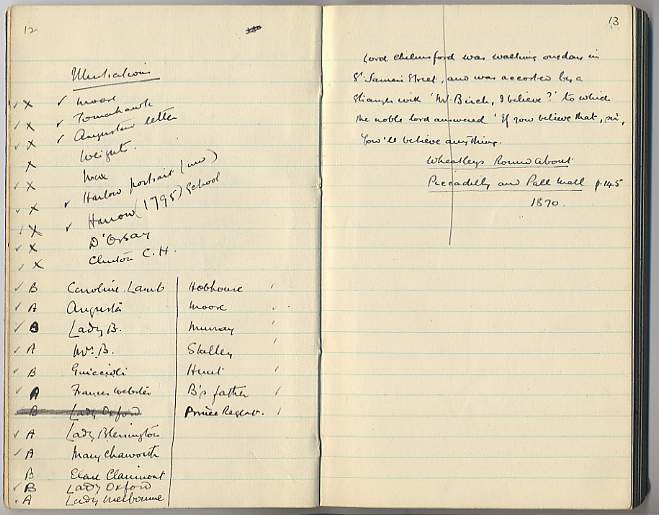 12
Illustrations
✓ X ✓ Moore
✓ X ✓ Tomahawk
✓ X ✓ Augusta's letter
X Weight.
✓ X Wax
✓ X ✓ Harlow portrait (une)
✓ X ✓ Harrow (1795) School
✓ X D'Orsay
✓ X Clinton C.H.
✓ B Caroline Lamb Hobhouse ✓
✓ A Augusta Moore
✓ B Lady B. Murray ✓
✓ A Mrs. B. Shelley ✓
✓ B Guiccioli Hunt ✓
✓ A Frances Webster B's father ✓
B Lady Oxford Prince Regent. ✓
✓ A Lady Blessington
✓ A Mary Chaworth
B Clare Clairmont
✓ B Lady Oxford
A Lady Melbourne
13
Lord Chelmsford was walking one day in
St. James's Street, and was accosted by a
stranger with 'Mr. Birch, I believe?' to which
the noble lord answered 'If you believe that, sir,
you'll believe anything.
Wheatleys Round About
Piccadilly and Pall Mall p.145
1870.